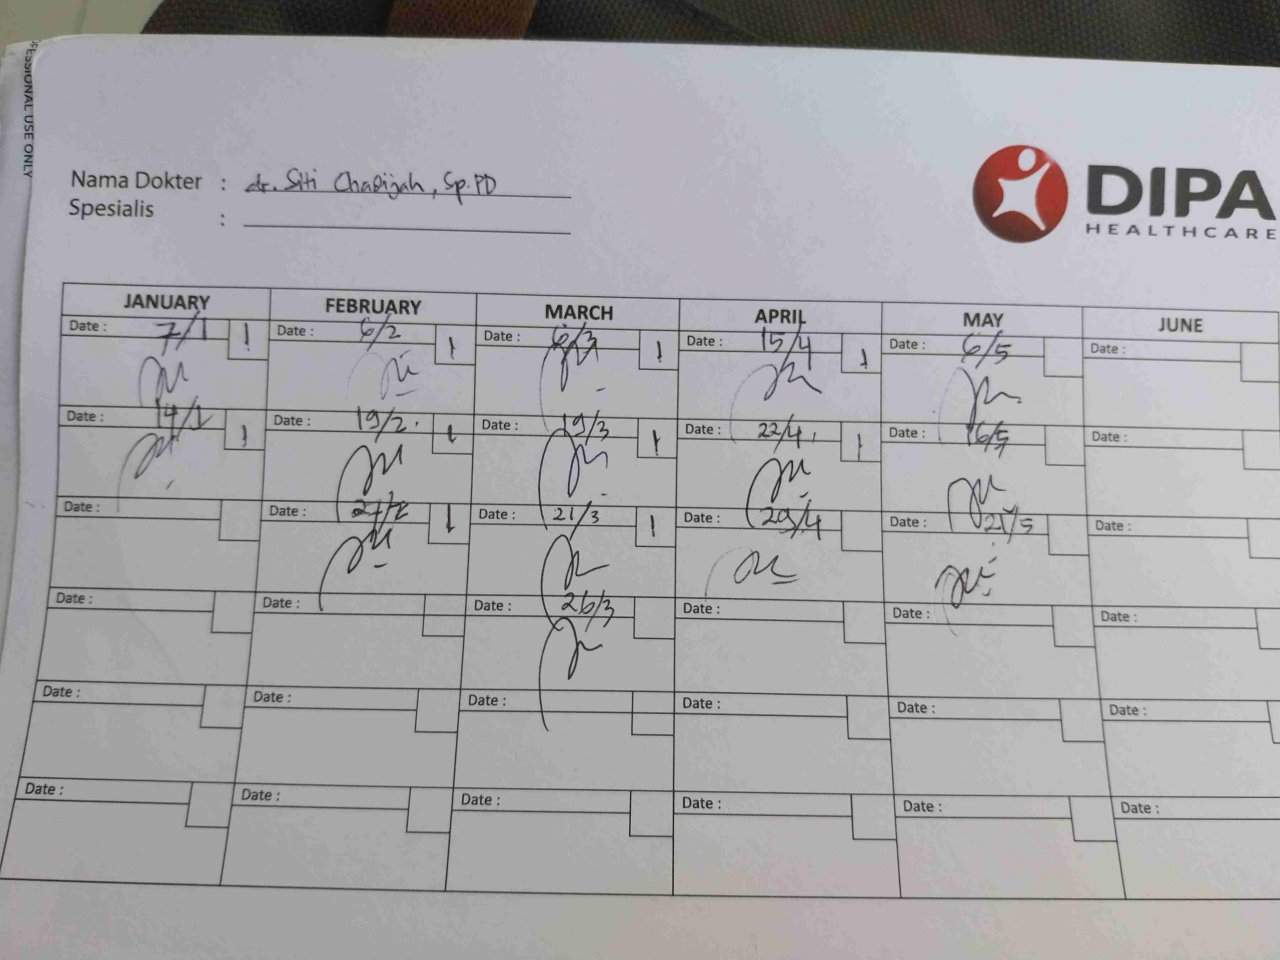 FESSIONAL USE ONLY
Nama Dokter : dr. Siti Chadijah, Sp.PD
Spesialis :
DIPA
HEALTHCARE
JANUARY FEBRUARY MARCH APRIL MAY JUNE
Date : 7/1 1 Date : 6/2 1 Date : 6/3 1 Date : 15/4 1 Date : 6/5 Date :
Date : 14/1 1 Date : 19/2. 1 Date : 19/3 1 Date : 22/4. 1 Date : 16/5 Date :
Date : Date : 27/2 1 Date : 21/3 1 Date : 29/4 Date : 21/5 Date :
Date : Date : Date : 26/3 Date : Date : Date :
Date : Date : Date : Date : Date : Date :
Date : Date : Date : Date : Date : Date :